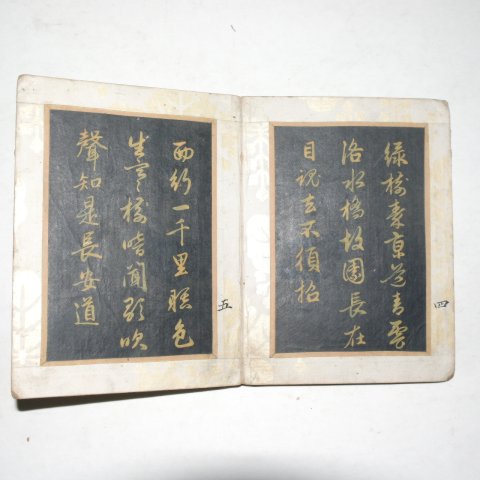 緑樹秦京道青雲
洛水橋故園長在
目魂去不須招
四
西行一千里暝色
生寒樹暗聞歌吹
聲知是長安道
五